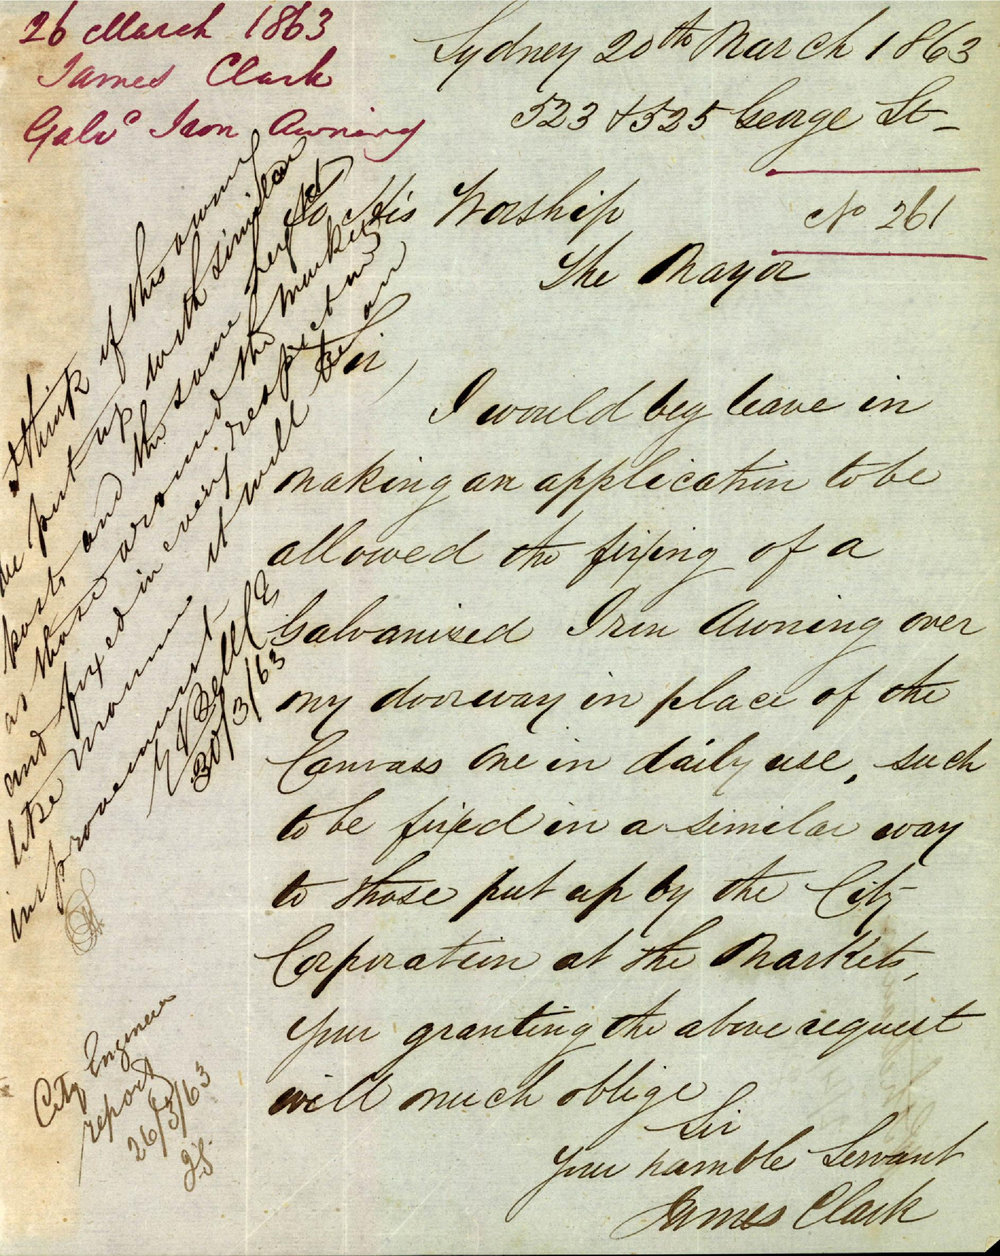 26 March 1863
James Clark
Galvc Iron Awning
Sydney 20th March 1863
523 & 525 George St
No 261
To His Worship
The Mayor
Sir,
I would beg leave in
making an application to be
allowed the fixing of a
Galvanized Iron Awning over
my doorway in place of the
Canvass one in daily use, such
to be fixed in a similar way
to those put up by the City
Corporation at the Markets,
your granting the above request
will much oblige
Sir
Your humble Servant
James Clark
think if this awning
be put up with similar
posts and the same height
as those around the markets
and fixed in every respect in
like manner it will be an
improvement
E Bell CE
30/3/63
City Engineer
report
26/3/63